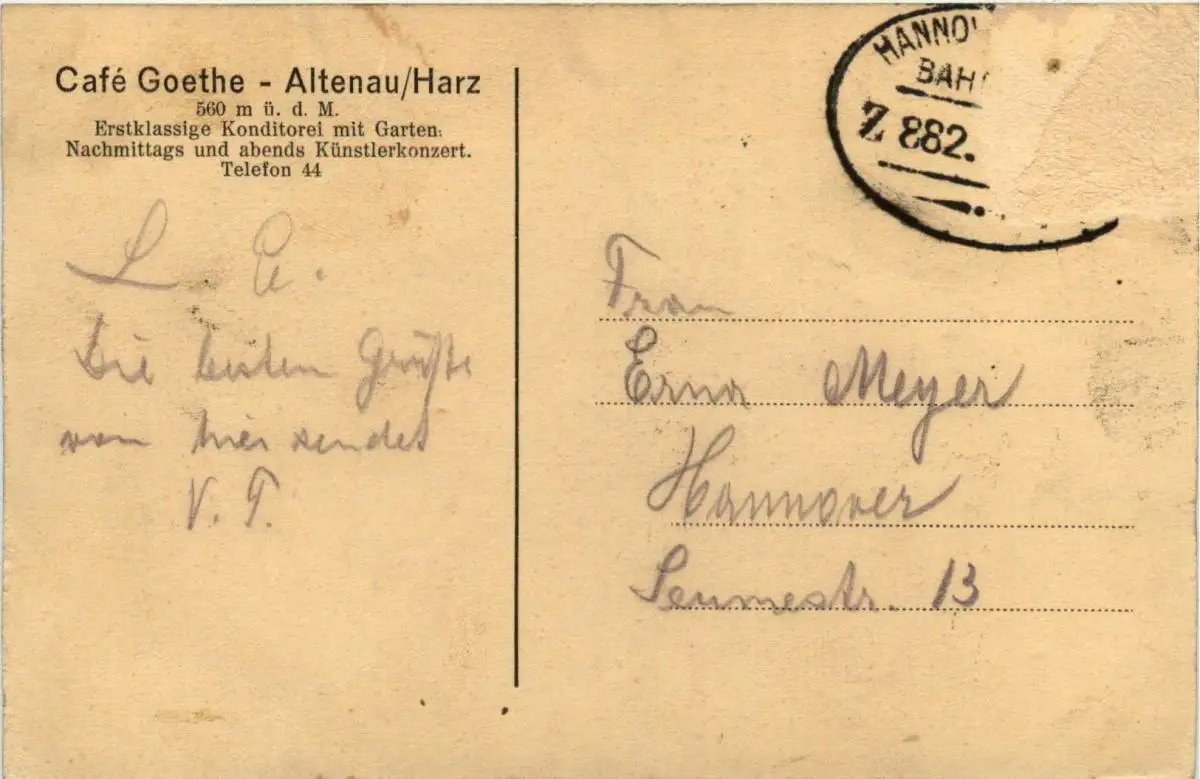 Café Goethe - Altenau/Harz
560 m ü. d. M.
Erstklassige Konditorei mit Garten.
Nachmittags und abends Künstlerkonzert.
Telefon 44
L. E.
Die besten Grüße
von hier sendet
V. T.
HANNO
BAH
Z 882.
Frau
Erna Meyer
Hannover
Seumestr. 13